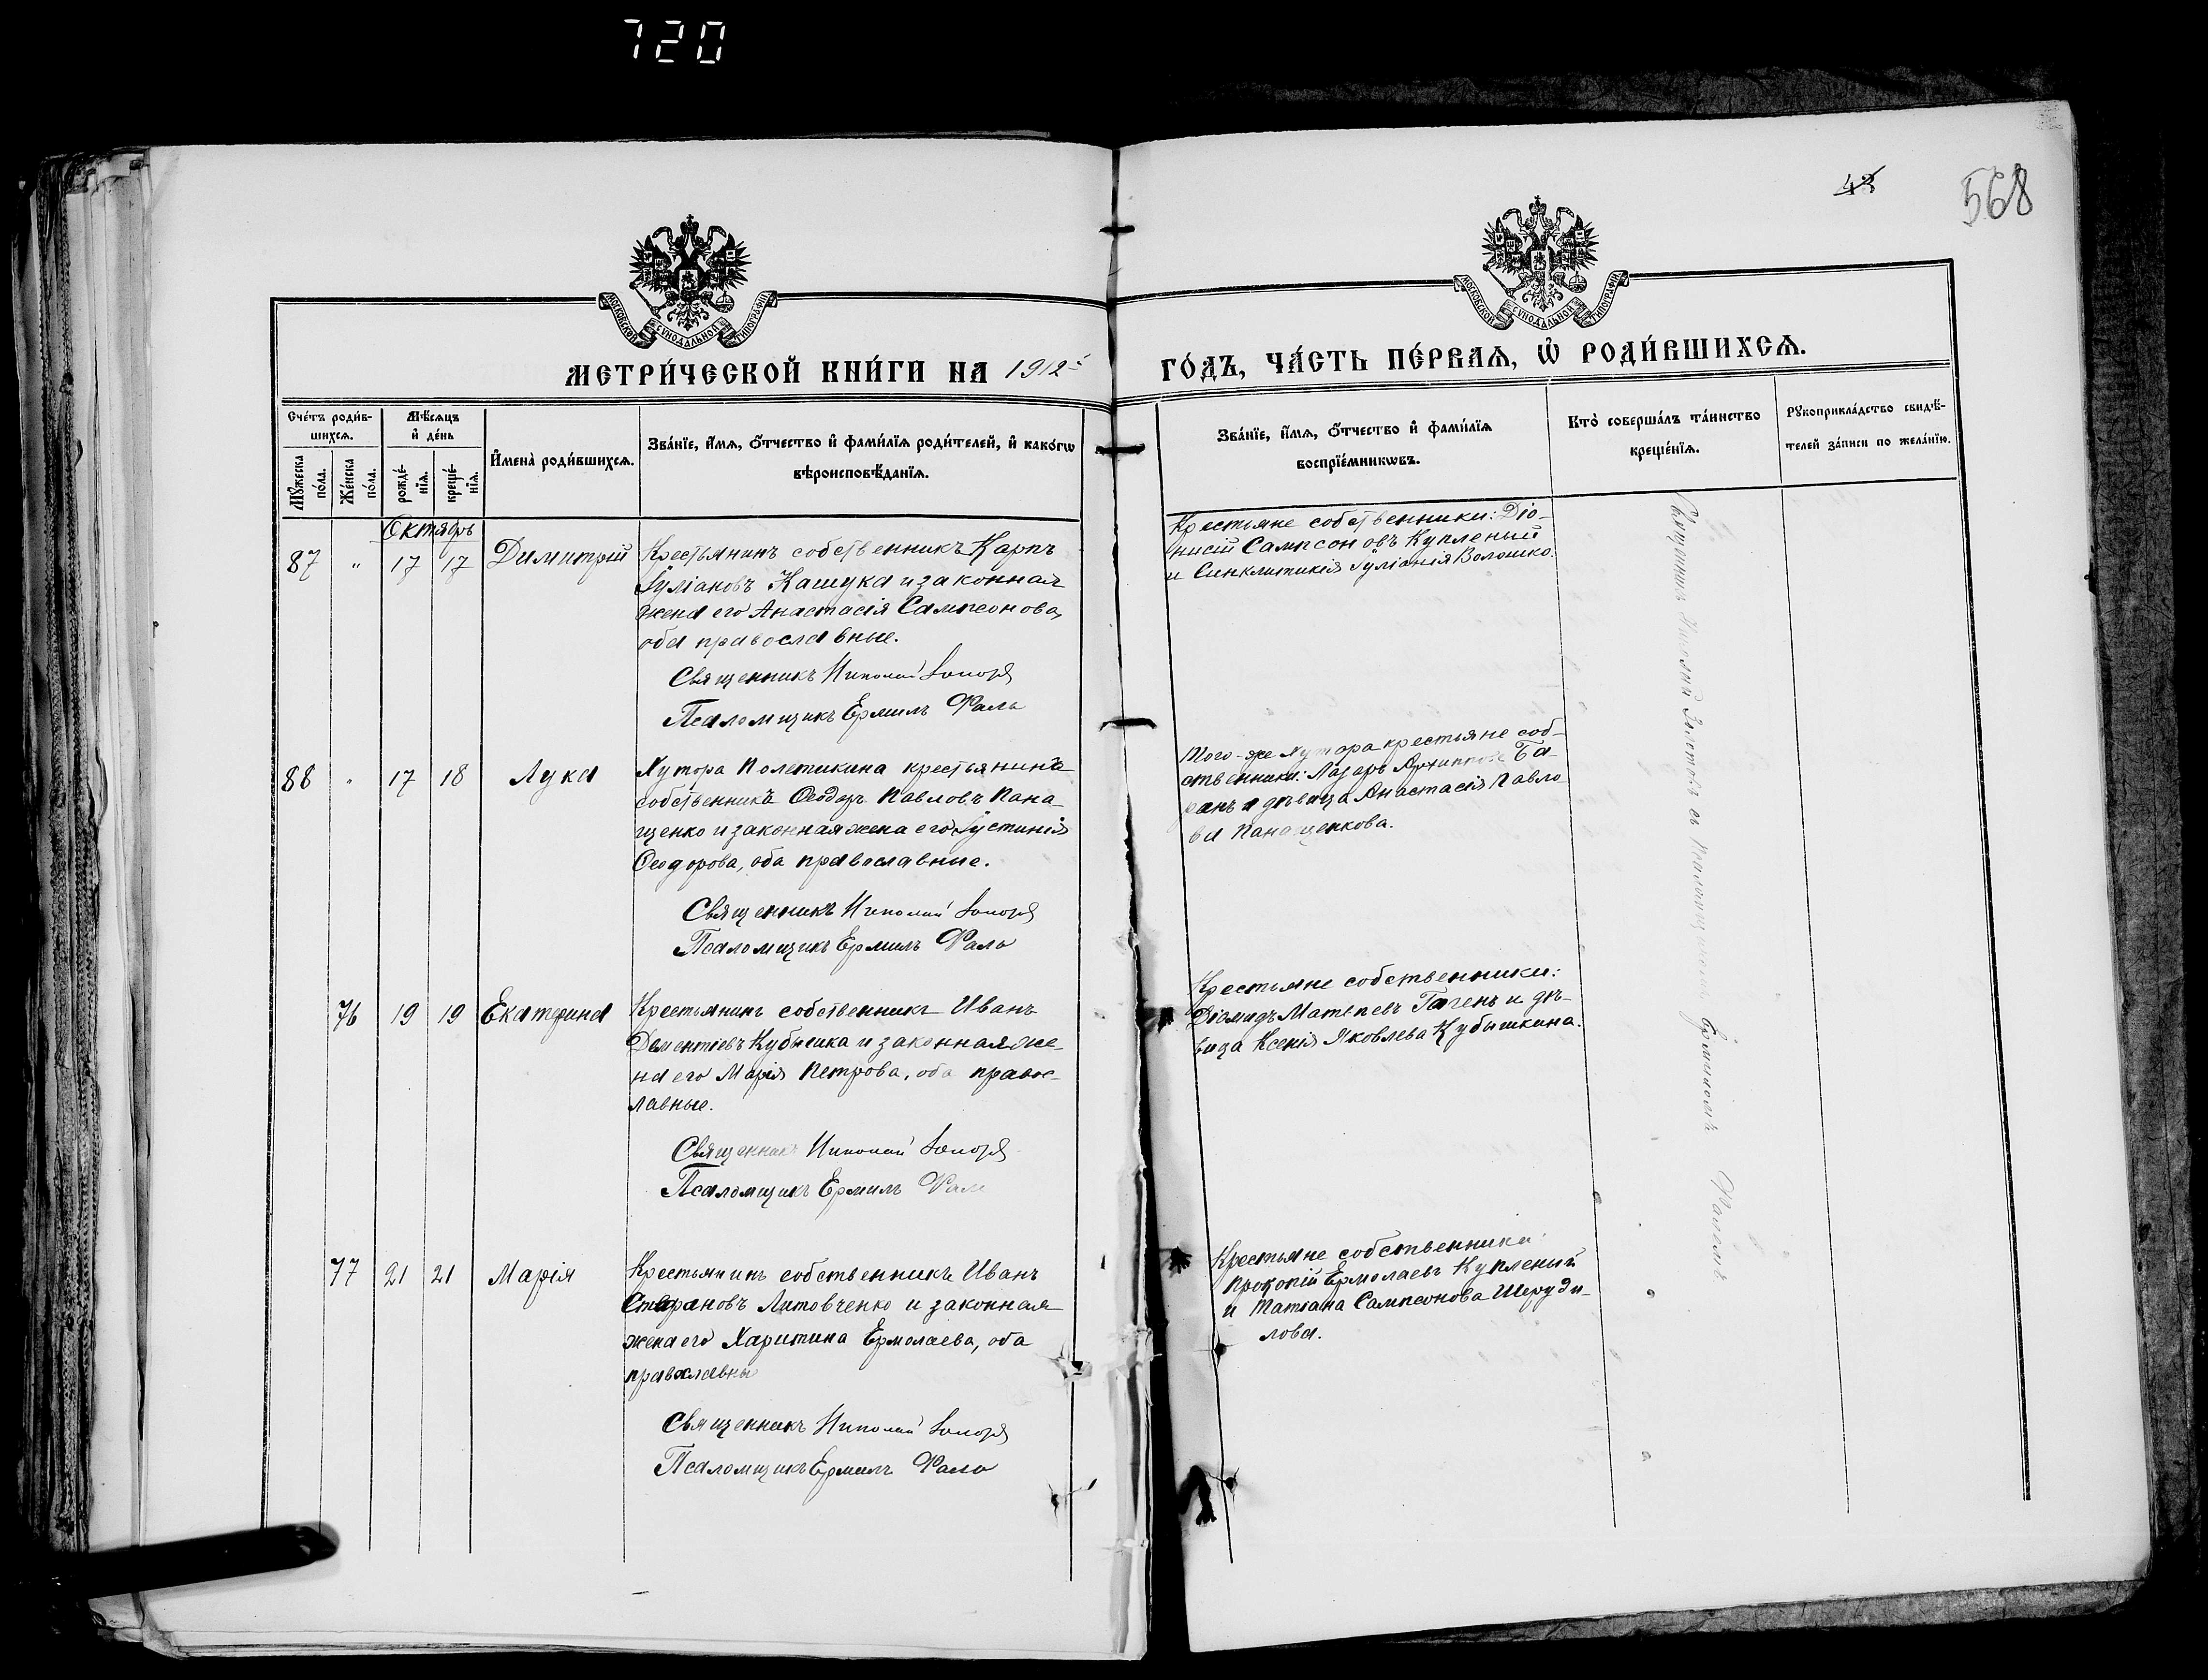 720
43
568
МОСКОВСКОЙ СѴНОДАЛЬНОЙ ТИПОГРАФІИ
МОСКОВСКОЙ СѴНОДАЛЬНОЙ ТИПОГРАФІИ
МЕТРИ́ЧЕСКОЙ КНИ́ГИ НА 1912й
ГО́ДЪ, ЧА́СТЬ ПЕ́РВАЯ, Ѡ҆ РОДИ́ВШИХСЯ.
Сче́тъ роди́в-
шихся.
Мѣ́сяцъ
и҆ де́нь
Мꙋ́жеска по́ла.
Же́нска по́ла.
рожде́-
нїѧ.
креще́-
нїѧ.
И҆мена̀ роди́вшихся.
Зва́нїе, и҆́мѧ, ѻ҆́тчество и҆ фами́лїѧ роди́телей, и҆ како́гѡ
вѣроисповѣ́данїѧ.
Зва́нїе, и҆́мѧ, ѻ҆́тчество и҆ фами́лїѧ
воспрїе́мникѡвъ.
Кто̀ соверша́лъ та́инство
креще́нїѧ.
Рꙋкоприкла́дство свидѣ́-
телей за́писи по жела́нїю.
Октябрь
87 " 17 17 Димитрій
Крестьянинъ собственникъ Карпъ
Іуліановъ Кашука и законная
жена его Анастасія Сампсонова,
оба православные.
Священникъ Николай
Псаломщикъ Ермилъ Фаль
Крестьяне собственники: Діо-
нисій Сампсоновъ Купленый
и Синклитикія Іуліанія Волошко.
88 " 17 18 Лука
Хутора Полетикина крестьянинъ
собственникъ Ѳеодоръ Павловъ Пана-
щенко и законная жена его Іустинія
Ѳеодорова, оба православные.
Священникъ Николай
Псаломщикъ Ермилъ Фаль
Того-же хутора крестьяне соб-
ственники: Лазарь Архиповъ Ба-
ранъ и дѣвица Анастасія Павло
ва Панащенкова.
76 19 19 Екатерина
Крестьянинъ собственникъ Иванъ
Дементіевъ Кубышка и законная же-
на его Марія Петрова, оба правос-
лавные.
Священникъ Николай
Псаломщикъ Ермилъ Фаль
Крестьяне собственники:
Діомидъ Матвеевъ Гачень и дѣ-
вица Ксенія Яковлева Кубышкина.
77 21 21 Марія
Крестьянинъ собственникъ Иванъ
Стефановъ Литовченко и законная
жена его Харитина Ермолаева, оба
православны
Священникъ Николай
Псаломщикъ Ермилъ Фаль
Крестьяне собственники:
Прокопій Ермолаевъ Купленый
и Татіана Сампсонова Шеруди-
лова.
Священникъ Николай съ псаломщикомъ Ермиломъ Фалемъ